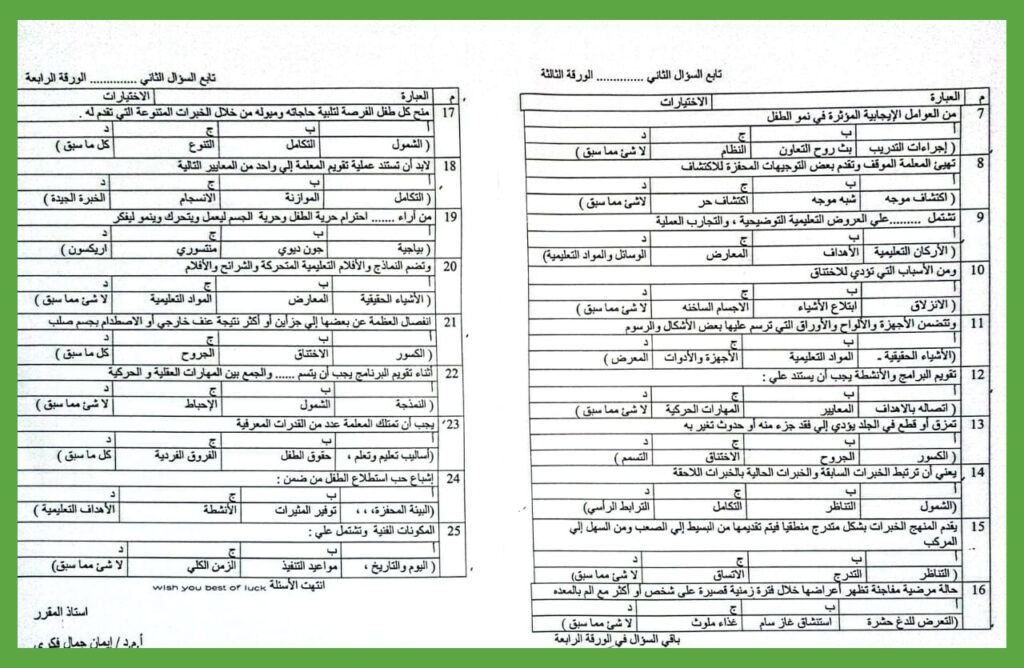 تابع السؤال الثاني .............. الورقة الثالثة
م العبارة الاختيارات
7 من العوامل الإيجابية المؤثرة في نمو الطفل
أ ب ج د
( إجراءات التدريب بث روح التعاون النظام لا شئ مما سبق )
8 تهيئ المعلمة الموقف وتقدم بعض التوجيهات المحفزة للاكتشاف
أ ب ج د
( اكتشاف موجه شبه موجه اكتشاف حر لاشئ مما سبق )
9 تشتمل .........علي العروض التعليمية التوضيحية ، والتجارب العملية
أ ب ج د
( الأركان التعليمية الأهداف المعارض الوسائل والمواد التعليمية)
10 ومن الأسباب التي تؤدي للاختناق
أ ب ج د
( الانزلاق ابتلاع الأشياء الاجسام الساخنه لا شئ مما سبق )
11 وتتضمن الأجهزة والألواح والأوراق التي ترسم عليها بعض الأشكال والرسوم
أ ب ج د
(الأشياء الحقيقية ـ المواد التعليمية الأجهزة والأدوات المعارض )
12 تقويم البرامج والأنشطة يجب أن يستند علي :
أ ب ج د
( اتصاله بالاهداف المعايير المهارات الحركية لا شئ مما سبق )
13 تمزق أو قطع في الجلد يؤدي إلي فقد جزء منه أو حدوث تغير به
أ ب ج د
( الكسور الجروح الاختناق التسمم )
14 يعني أن ترتبط الخبرات السابقة والخبرات الحالية بالخبرات اللاحقة
أ ب ج د
(الشمول التناظر التكامل الترابط الرأسي)
15 يقدم المنهج الخبرات بشكل متدرج منطقيا فيتم تقديمها من البسيط إلي الصعب ومن السهل إلي
المركب
أ ب ج د
( التناظر التدرج الاتساق لا شئ مما سبق)
16 حالة مرضية مفاجئة تظهر أعراضها خلال فترة زمنية قصيرة على شخص أو أكثر مع الم بالمعده
أ ب ج د
(التعرض للدغ حشرة استنشاق غاز سام غذاء ملوث لا شئ مما سبق )
باقي السؤال في الورقة الرابعة
تابع السؤال الثاني .............. الورقة الرابعة
م العبارة الاختيارات
17 منح كل طفل الفرصة لتلبية حاجاته وميوله من خلال الخبرات المتنوعة التي تقدم له .
أ ب ج د
( الشمول التكامل التنوع كل ما سبق )
18 لابد أن تستند عملية تقويم المعلمة إلي واحد من المعايير التالية
أ ب ج د
( التكامل الموازنة الانسجام الخبرة الجيدة )
19 من أراء ....... احترام حرية الطفل وحرية الجسم ليعمل ويتحرك وينمو ليفكر
أ ب ج د
( بياجية جون ديوي منتسوري اريكسون )
20 وتضم النماذج والأفلام التعليمية المتحركة والشرائح والأفلام
أ ب ج د
( الأشياء الحقيقية المعارض المواد التعليمية لا شئ مما سبق )
21 انفصال العظمة عن بعضها إلي جزأين أو أكثر نتيجة عنف خارجي أو الاصطدام بجسم صلب
أ ب ج د
( الكسور الاختناق الجروح كل ما سبق )
22 أثناء تقويم البرنامج يجب أن يتسم ...... والجمع بين المهارات العقلية و الحركية
أ ب ج د
( النمذجة الشمول الإحباط لا شئ مما سبق )
23 يجب أن تمتلك المعلمة عدد من القدرات المعرفية
أ ب ج د
(أساليب تعليم وتعلم ، حقوق الطفل الفروق الفردية كل ما سبق )
24 إشباع حب استطلاع الطفل من ضمن :
أ ب ج د
(البيئة المحفزة، ، ، توفير المثيرات الأنشطة الأهداف التعليمية )
25 المكونات الفنية وتشتمل علي :
أ ب ج د
( اليوم والتاريخ ، مواعيد التنفيذ الزمن الكلي لا شئ مما سبق)
انتهت الأسئلة wish you best of luck
استاذ المقرر
أ.م.د / إيمان جمال فكري